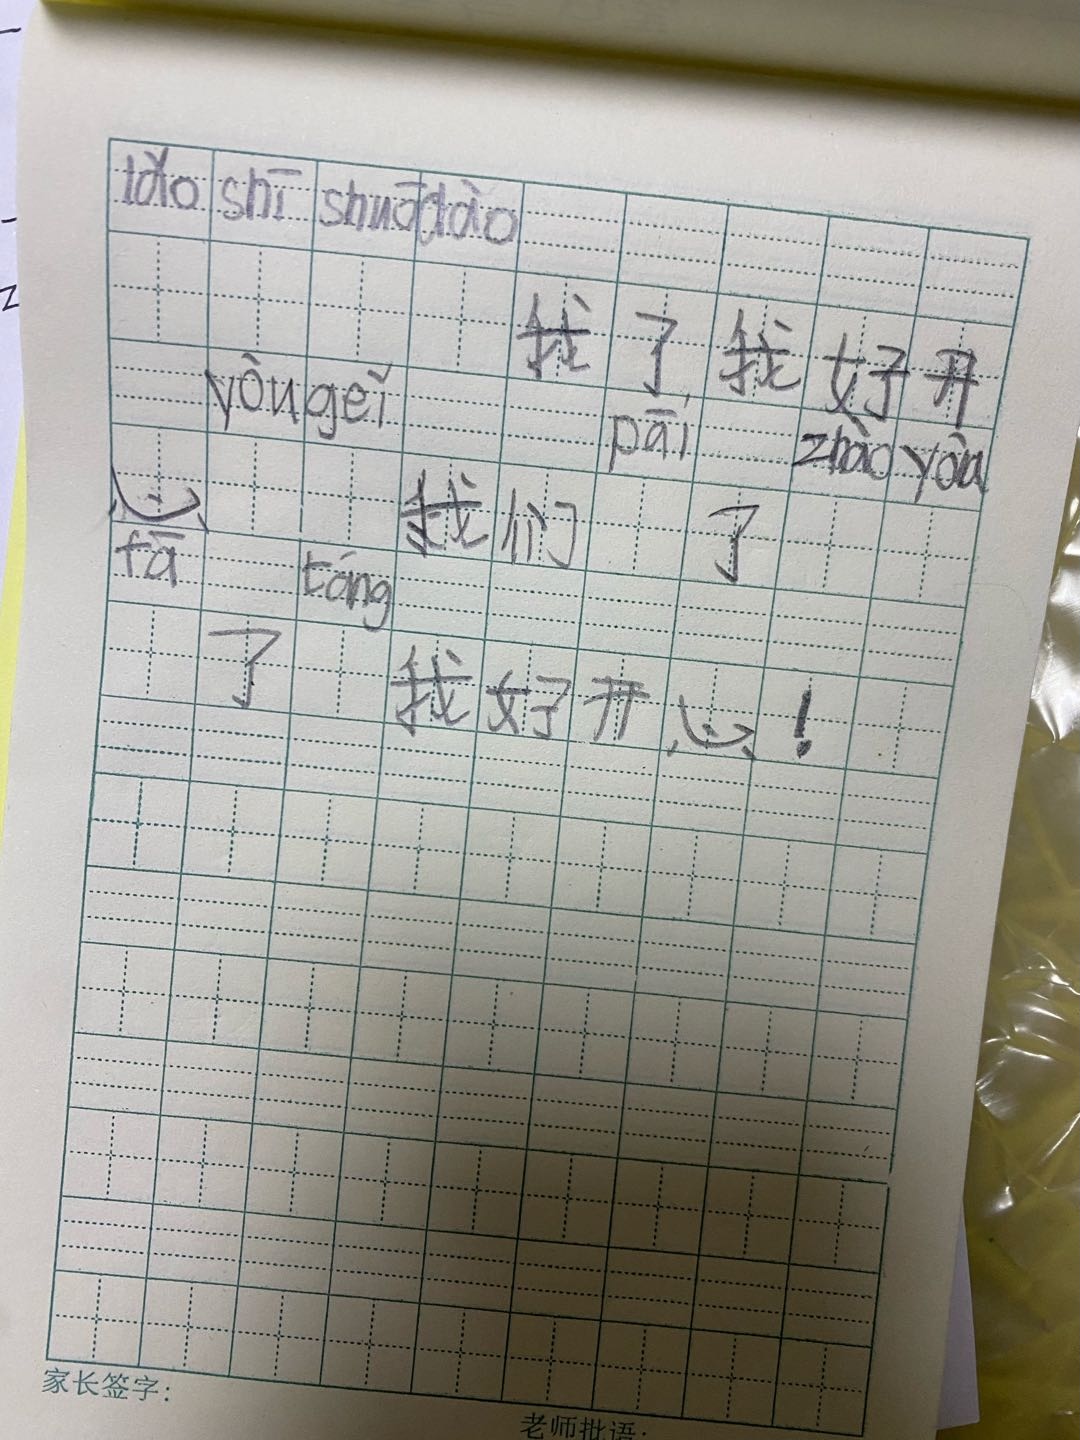 lǎo shī shuō dào
我了,我好开
yòu geǐ pāi zhào yòu
心 我们 了
fā táng
了 我好开心!
家长签字:
老师批语: